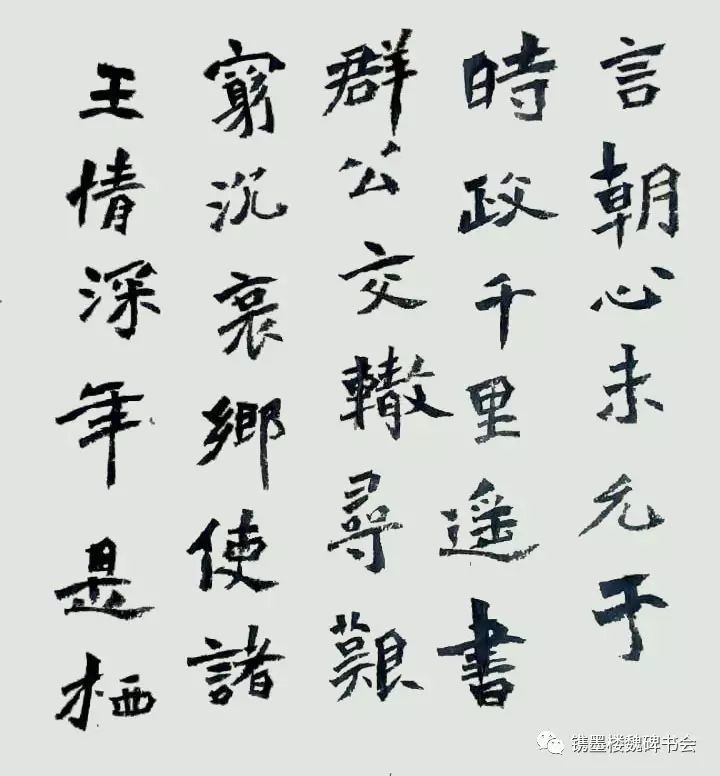 言朝心未允于
時政千里遥書
群公交轍尋艱
窮沉哀鄉使諸
王情深年是栖
镌墨楼魏碑书会